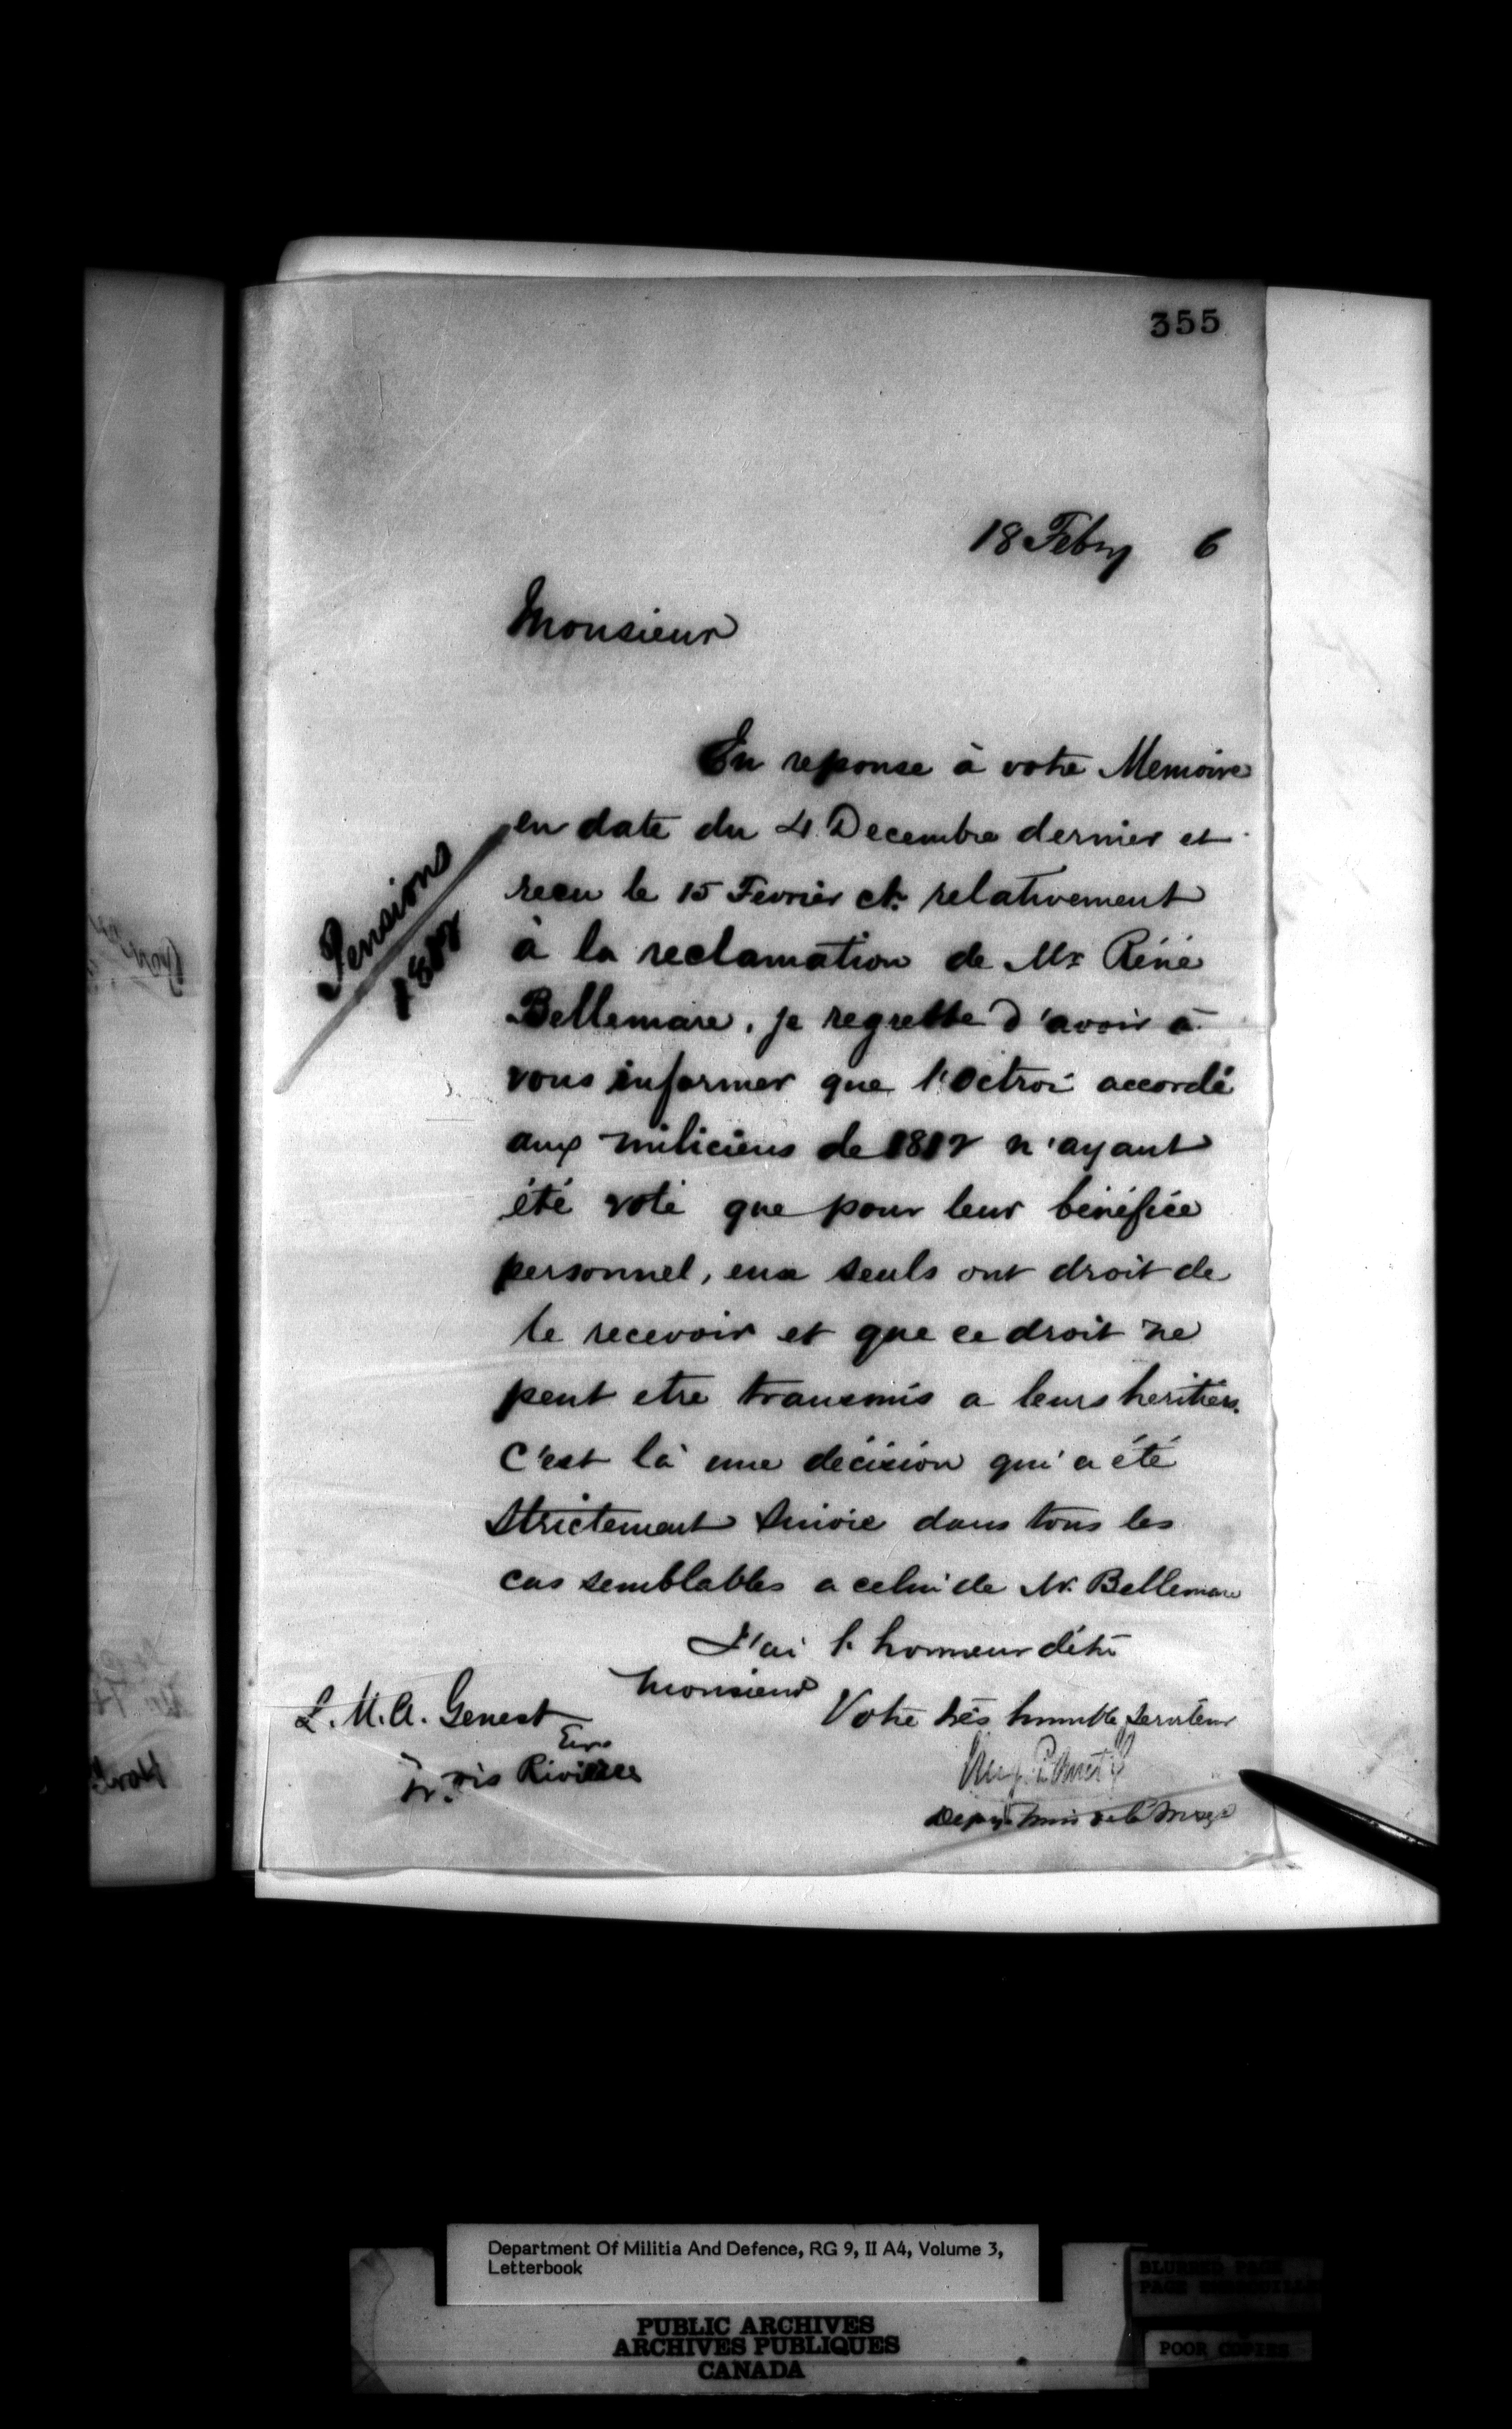 355
18 Feby 6
Monsieur
En reponse à votre Memoire
en date du 4 Decembre dernier et
recu le 15 Fevrier ct. relativement
à la reclamation de Mr Réné
Bellemare, je regrette d'avoir à
vous informer que l'Octroi accordé
aux miliciens de 1812 n'ayant
été voté que pour leur bénéfice
personnel, eux seuls ont droit de
le recevoir et que ce droit ne
peut etre transmis a leurs heritiers.
C'est là une décision qui a été
strictement suivie dans tous les
cas semblables a celui de Mr. Bellemare
J'ai l'honneur d'être
Monsieur
Votre très humble serviteur
Pensions
1812
L. U. A. Genest
Trois Rivières
Department Of Militia And Defence, RG 9, II A4, Volume 3,
Letterbook
PUBLIC ARCHIVES
ARCHIVES PUBLIQUES
CANADA
BLURRED PAGE
POOR COPIES